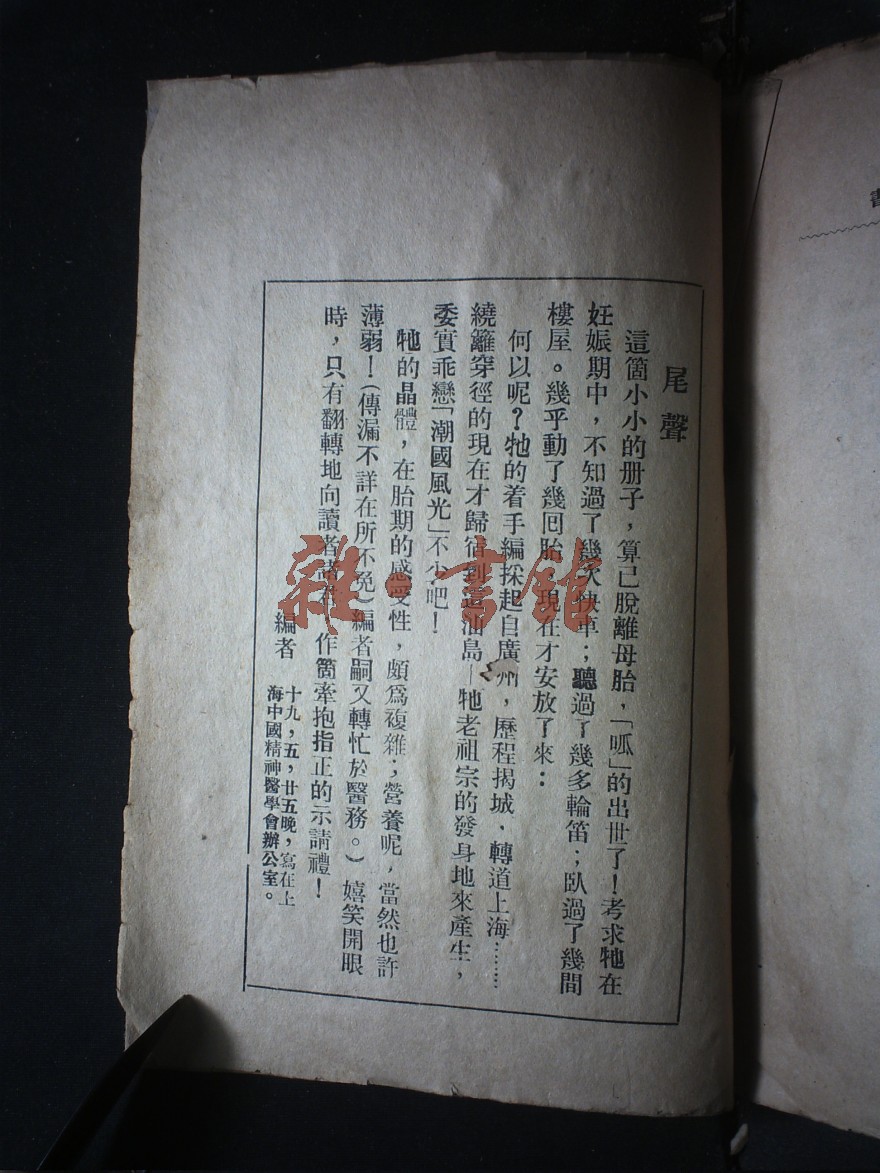 尾聲
這箇小小的册子，算已脫離母胎，「呱」的出世了！考求牠在
妊娠期中，不知過了幾次快車；聽過了幾多輪笛；臥過了幾間
樓屋。幾乎動了幾回胎，現在才安放了來：
何以呢？牠的着手編採起自廣州，歷程揭城，轉道上海……
繞籬穿徑的現在才歸宿到這汕島—牠老祖宗的發身地來產生，
委實乖戀「潮國風光」不少吧！
牠的晶體，在胎期的感受性，頗爲複雜；營養呢，當然也許
薄弱！（傳漏不詳在所不免）編者嗣又轉忙於醫務。）嬉笑開眼
時，只有翻轉地向讀者諸君 作箇牽抱指正的示請禮！
編者
十九，五，廿五晚，寫在上
海中國精神醫學會辦公室。
雜·書館
書